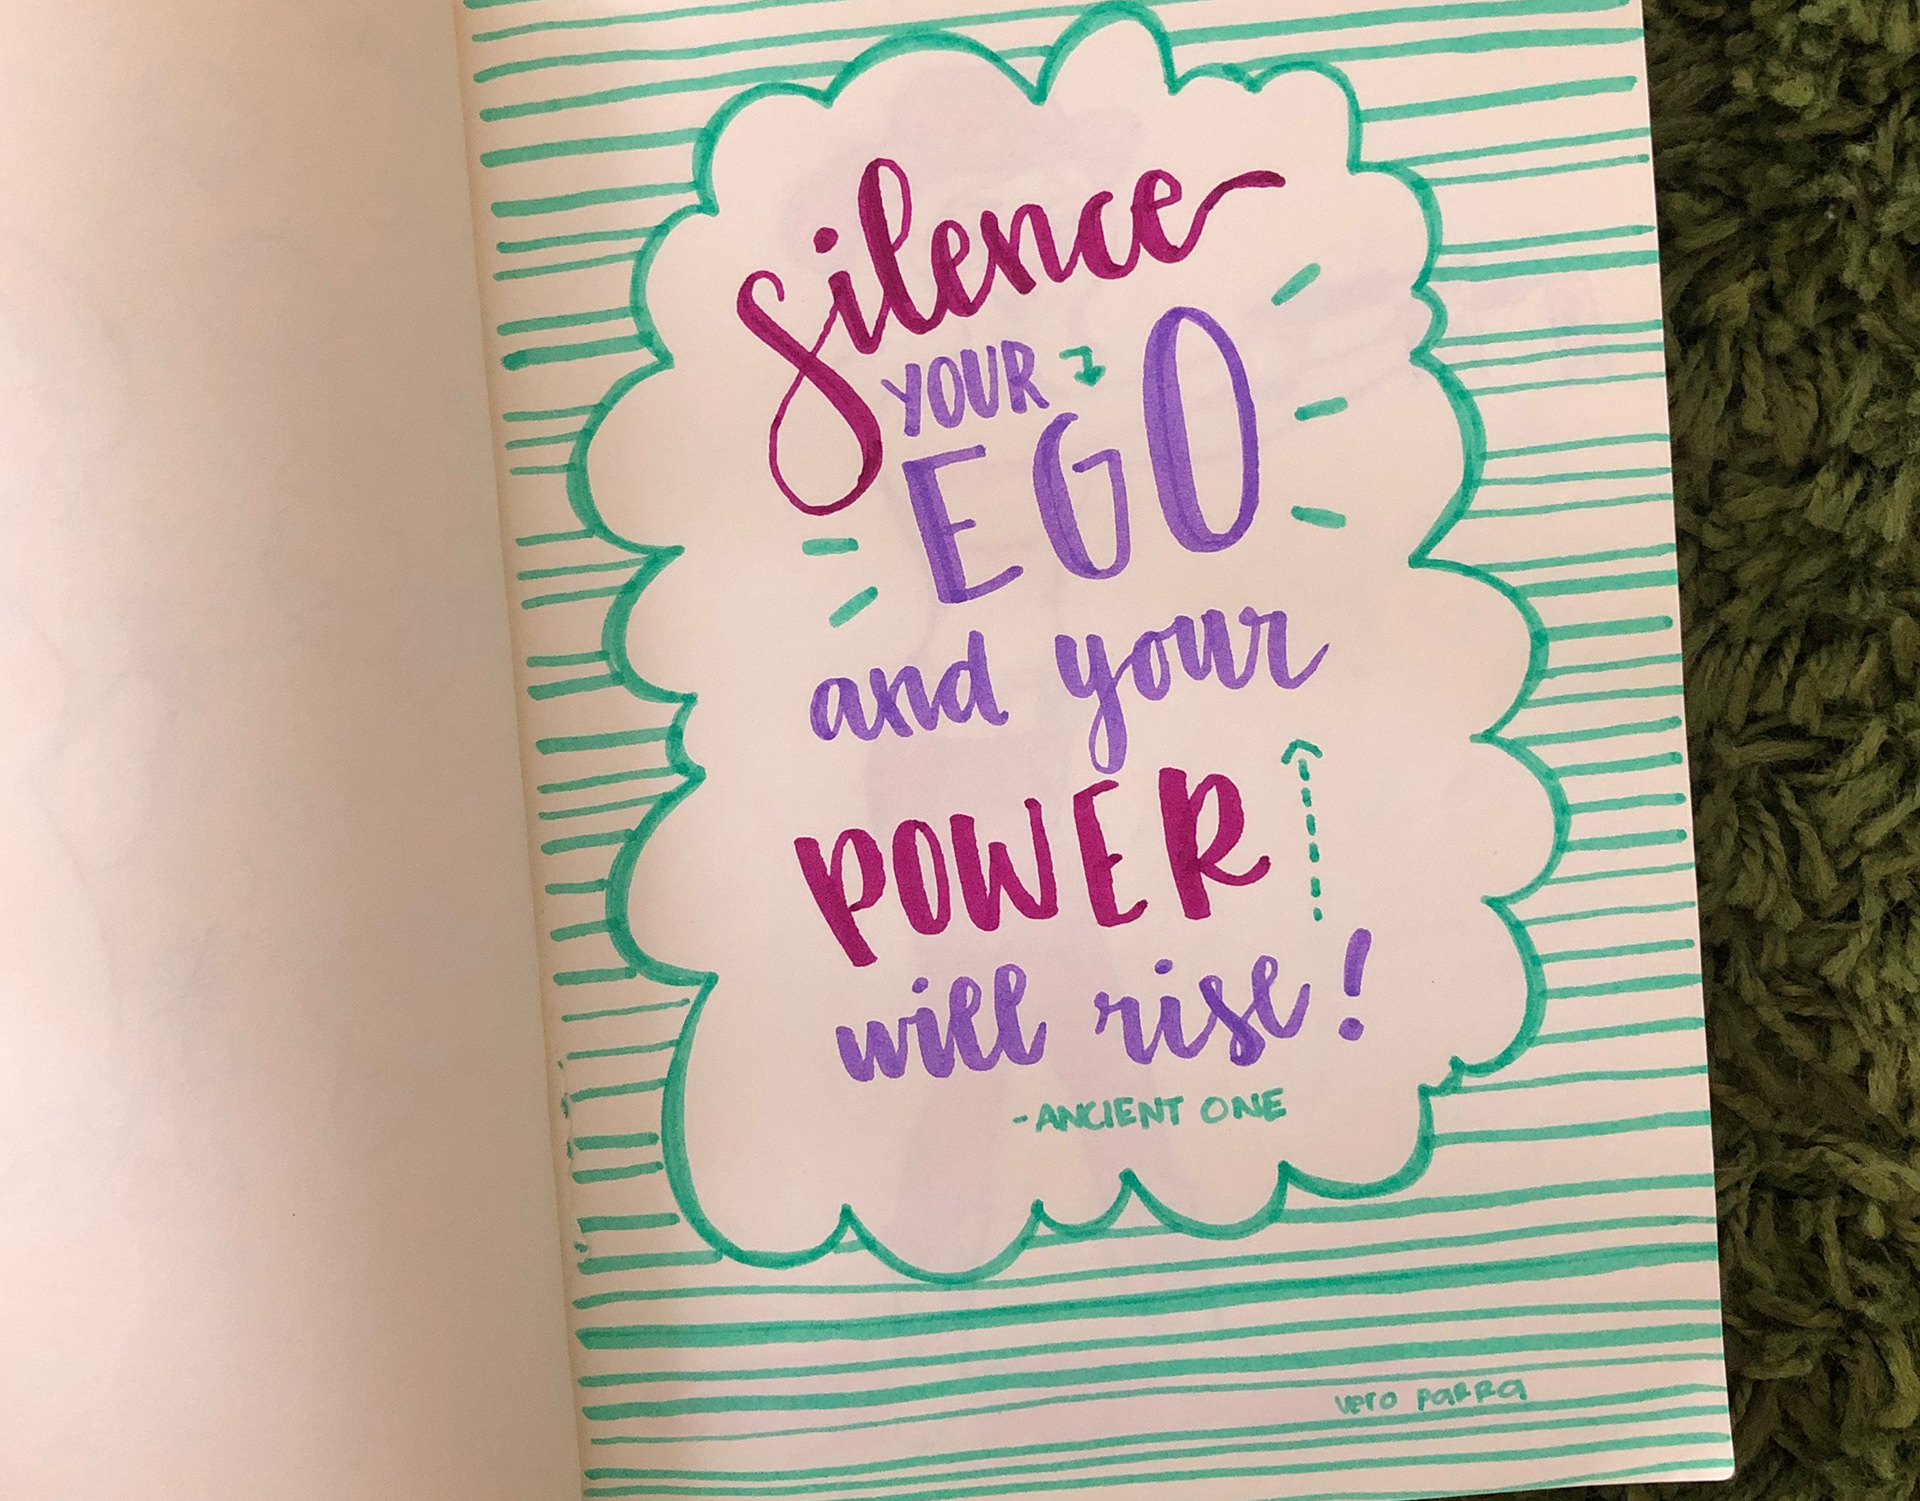 silence
YOUR
EGO
and your
POWER
will rise!
-ANCIENT ONE
vero parra